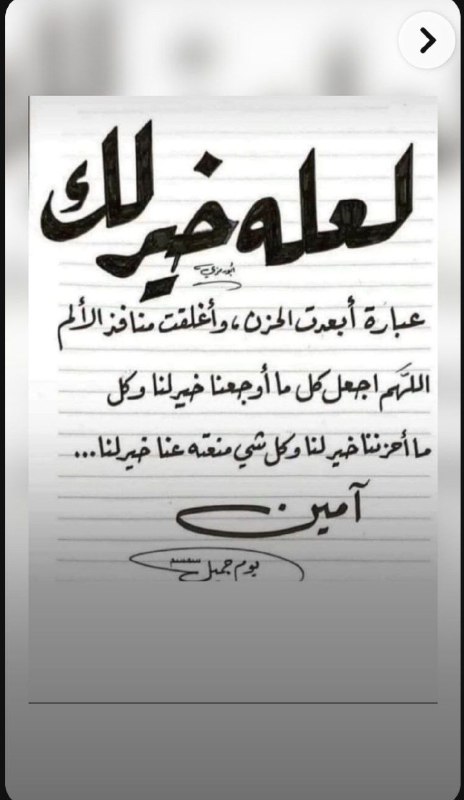 لعله خير لك
أبو رزي
عبارة أبعدت الحزن، وأغلقت منافذ الألم
اللهم اجعل كل ما أوجعنا خير لنا وكل
ما أحزننا خير لنا وكل شي منعته عنا خير لنا...
آمين
يوم جميل